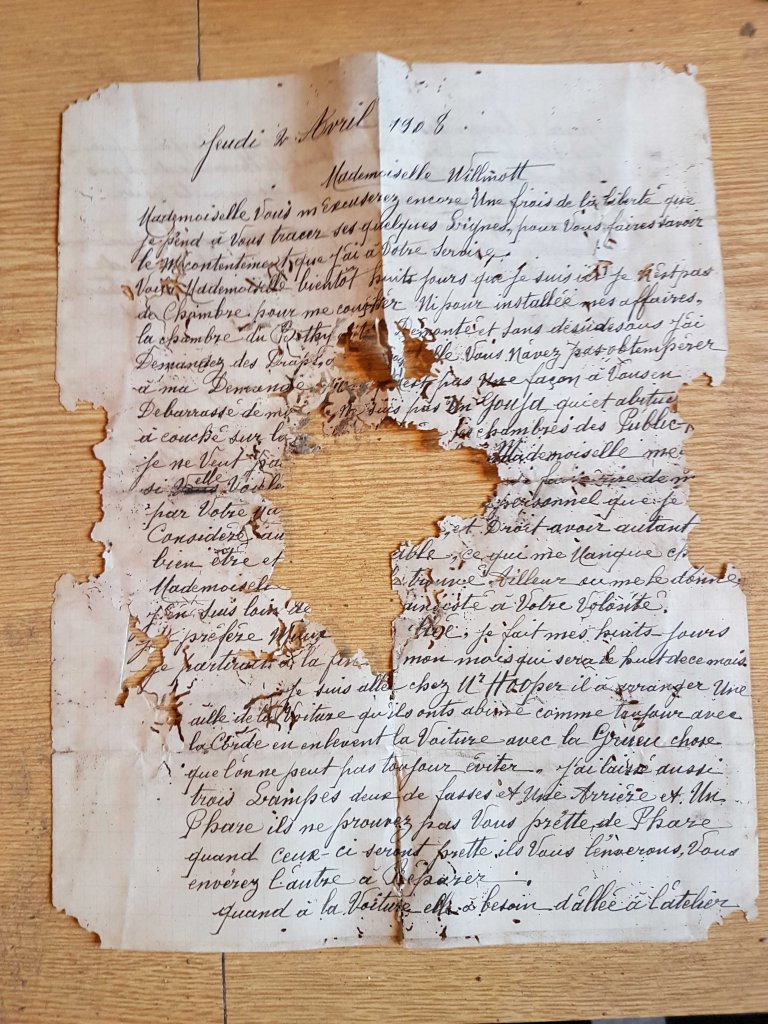 Jeudi 2 Avril 1908.
Mademoiselle Willmott
Mademoiselle Vous m'Excuserez encore Une frois de la Liberté que
je pend à Vous tracer ses quelques Lignes, pour Vous faires savoir
le Mécontentement que j'ai à Votre Service.
Voila Mademoiselle bientôt huits jours que je suis ici je n'est pas
de Chambre pour me coucher Ni pour installée mes affaires,
la chambre du est Demonté et sans desu desous j'ai
Demandez des Drap Vous n'avez pas obtempérer
à ma Demande pas Une façon à Vous en
Debarrassé de moi suis pas Un Gouja qui et abitué
à couché sur la chambres des Public,
je ne Veut pas Mademoiselle me
si elle Voul faire rire de m
par Votre personnel que je
Considéré au et Droit avoir autant
bien être et able, ce qui me Manque
Mademoiselle trouvé Ailleur ou me le donné
j'en suis loin de à Votre Volonté.
je préfère Mieux je fait mes huits jours
je partirait à la fin mon mois qui sera le huit de ce mois
je suis allé chez Mr Hooper il à arranger Une
aille de la Voiture qu'ils onts abimé comme toujour avec
la Corde en enlevent la Voiture avec la Grueu chose
que l'on ne peut pas toujour éviter. j'ai laissé aussi
trois Lampes deux de fasses et Une Arrière et Un
Phare ils ne prouvez pas Vous prétté de Phare
quand ceux-ci seront prette ils Vous l'enverons, Vous
enverez l'autre à Réparer
quand à la Voiture elle à besoin d'allée à l'atelier